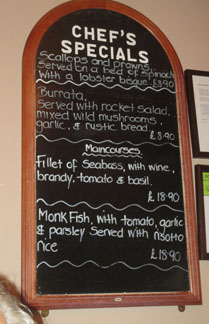 CHEF'S
SPECIALS
Scallops and prawns
Served on a bed of spinach
with a lobster bisque. £8.90
Burrata,
Served with rocket salad,
mixed wild mushrooms,
garlic, & rustic bread
£8.90
Maincourses.
Fillet of Seabass, with wine,
brandy, tomato & basil.
£18.90
Monkfish, with tomato, garlic
& parsley Served with risotto
rice
£18.90